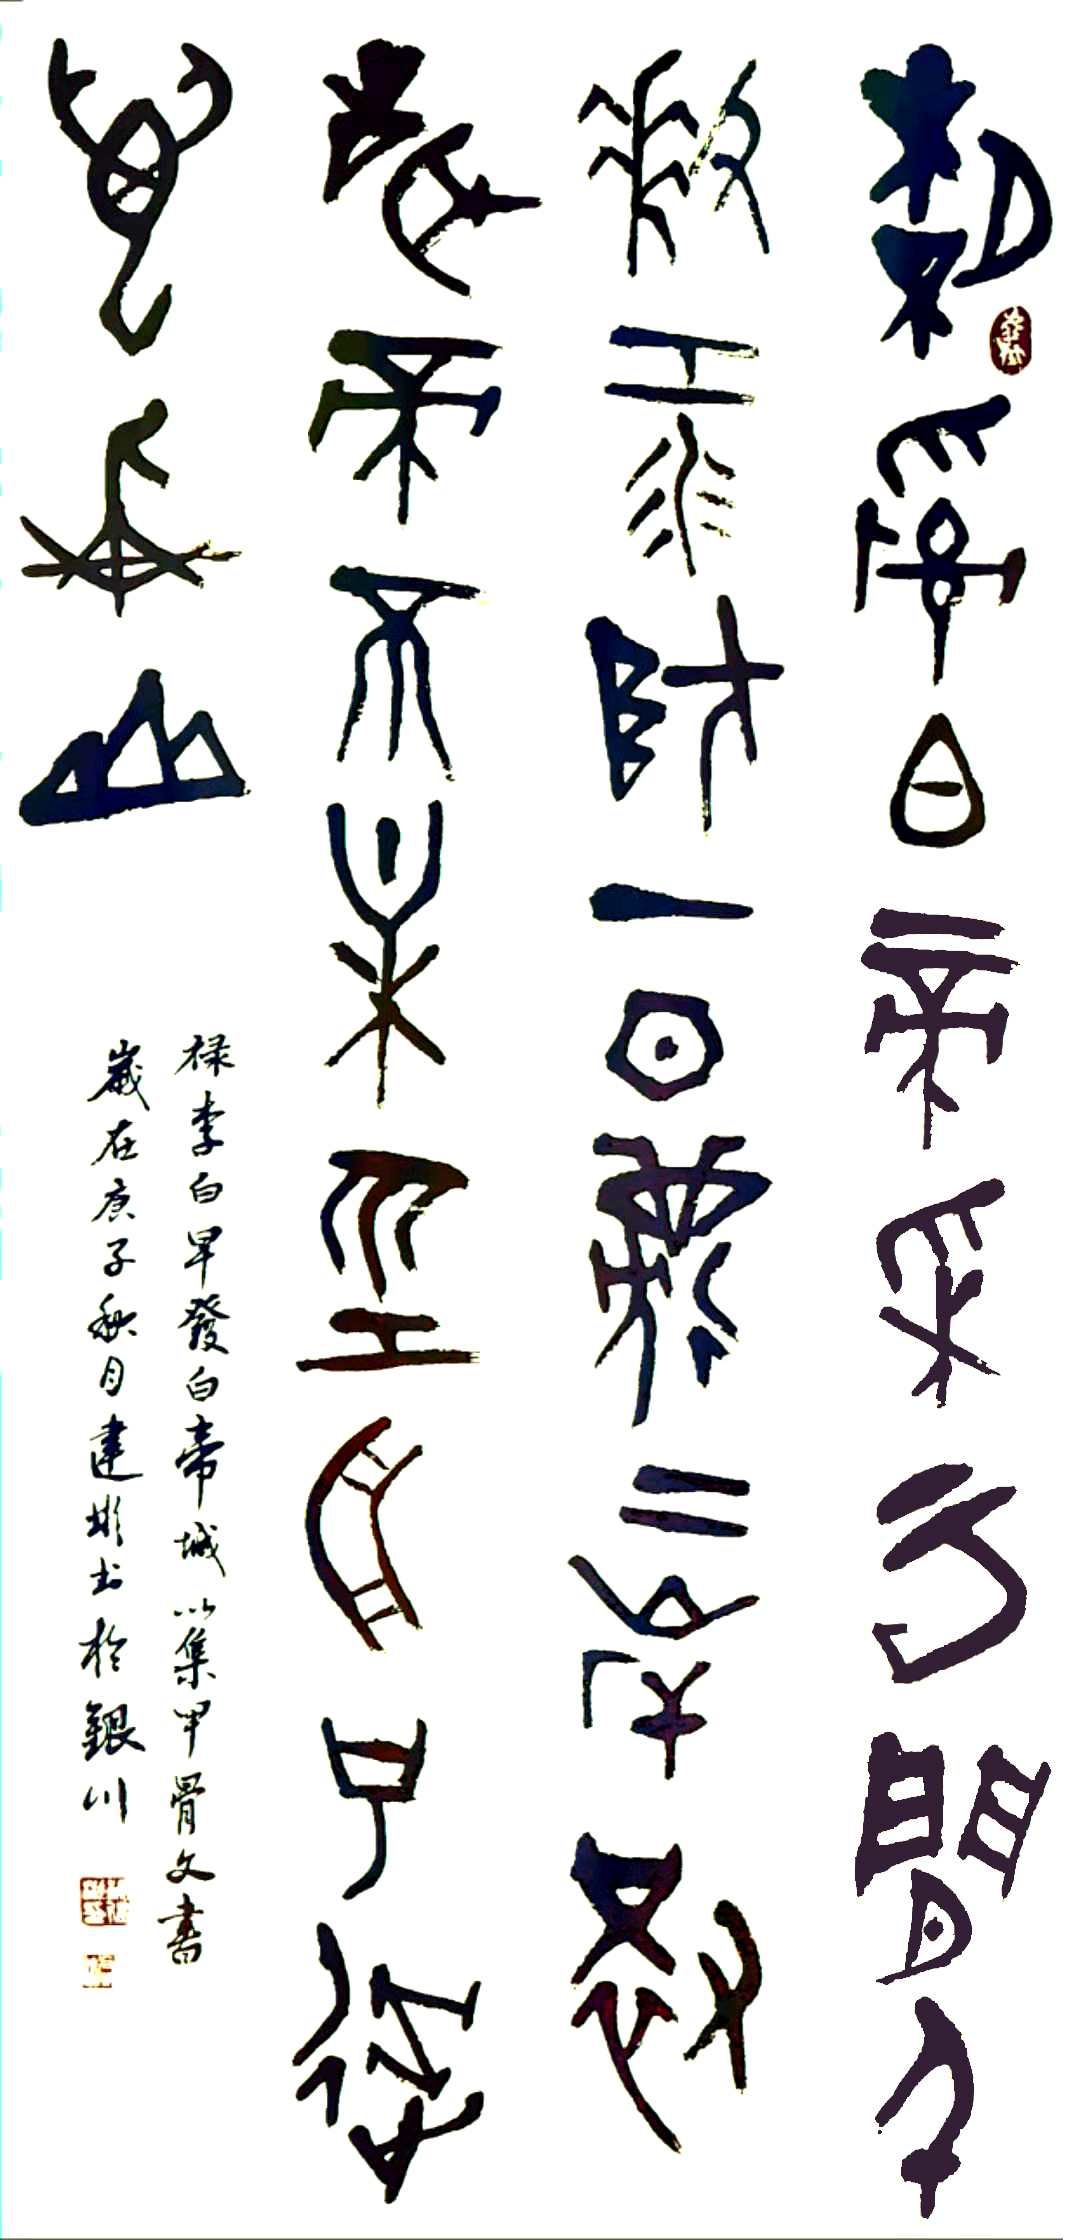 朝辭白帝采云間千
里江陵一日還兩岸猿
聲啼不住輕舟已過
萬重山
祿李白早發白帝城以集甲骨文書
歲在庚子秋月建彬书於銀川